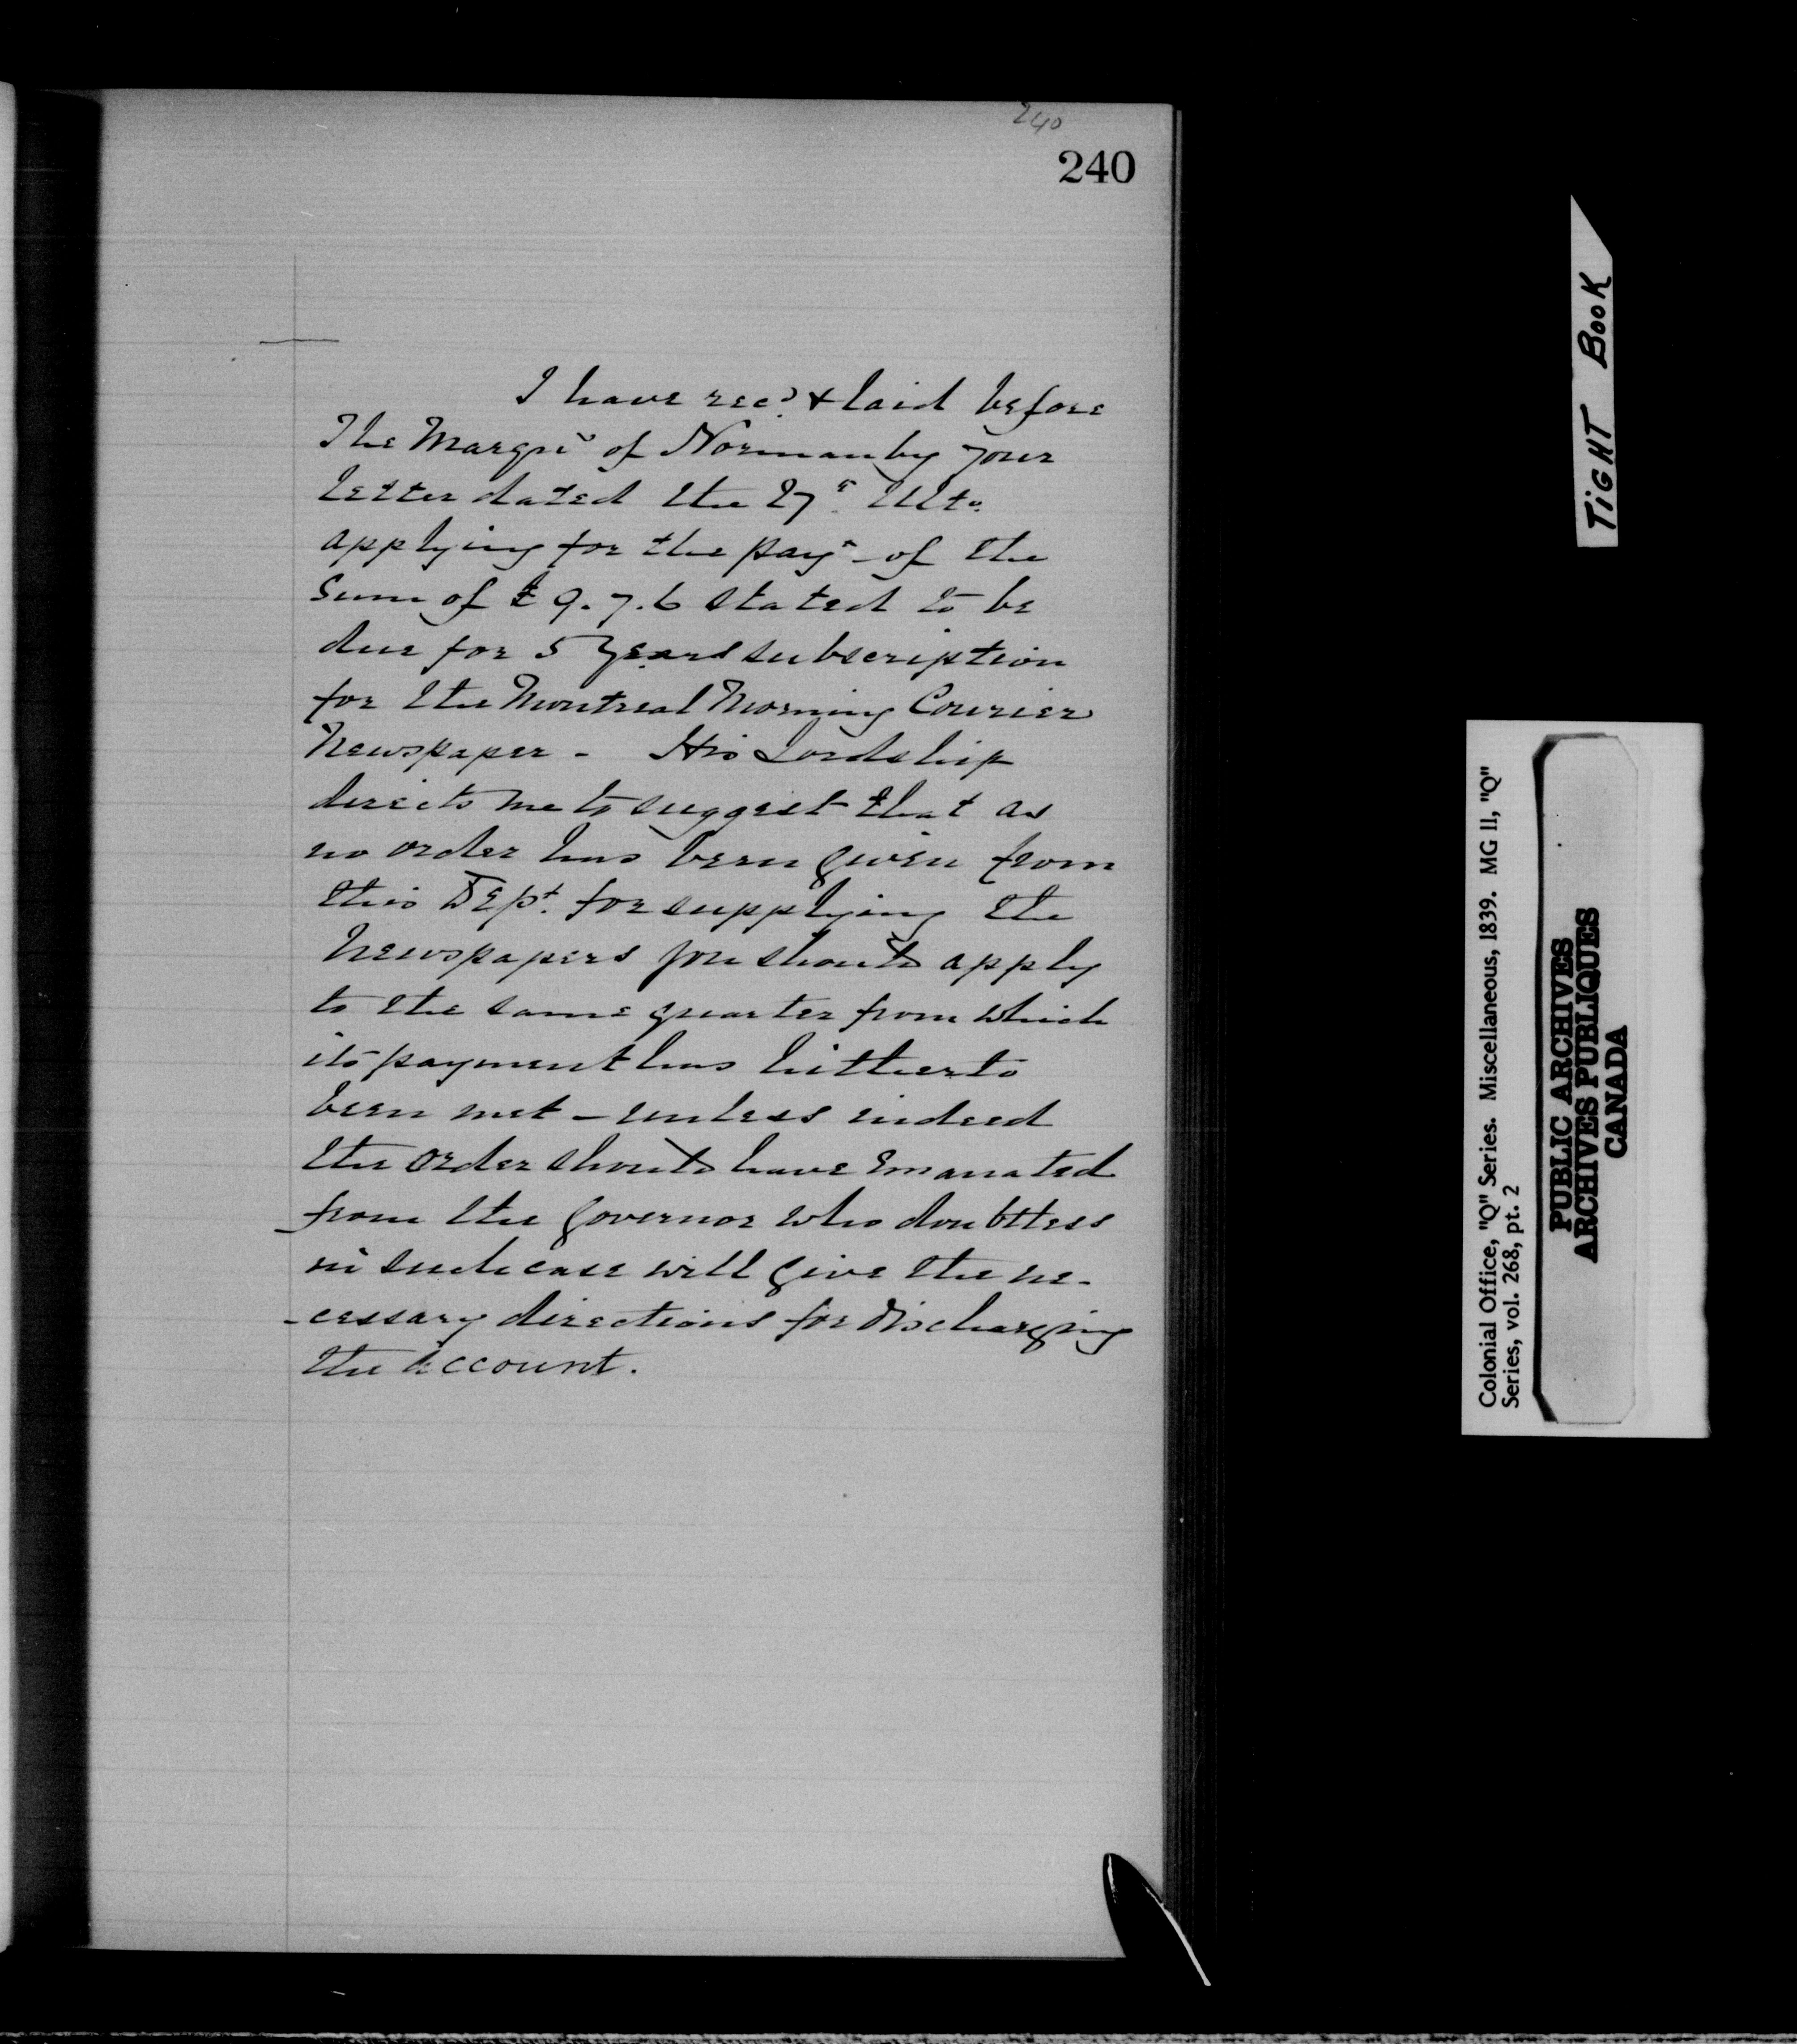 240
240
I have recd. & laid before
The Marqis of Normanby your
letter dated the 27th Ulto.
applying for the payt of the
sum of £9.7.6 stated to be
due for 5 years subscription
for the Montreal Morning Courier
Newspaper - His Lordship
directs me to suggest that as
no order has been given from
this Dept. for supplying the
Newspapers you should apply
to the same quarter from which
its payment has hitherto
been met - unless indeed
the order should have emanated
from the Governor who doubtless
in such case will give the ne-
-cessary directions for discharging
the account.
TIGHT BOOK
Colonial Office, "Q" Series. Miscellaneous, 1839. MG 11, "Q"
Series, vol. 268, pt. 2
PUBLIC ARCHIVES
ARCHIVES PUBLIQUES
CANADA